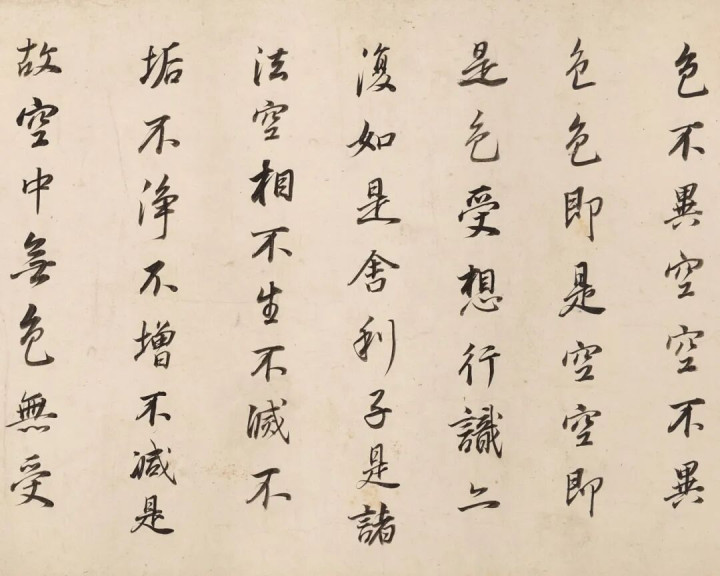 色不異空空不異
色色即是空空即
是色受想行識亦
復如是舍利子是諸
法空相不生不滅不
垢不淨不增不減是
故空中無色無受